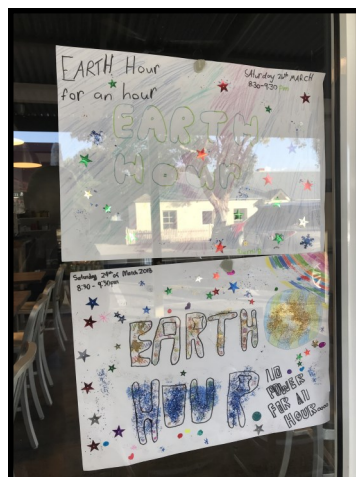 EARTH Hour
for an hour
SAturday 24th MARCH
8:30-9:30 pm
EARTH
HOUR
Saturday 24th of March 2018
8:30 - 9:30pm
EARTH
HOUR
NO
POWER
FOR AN
HOUR